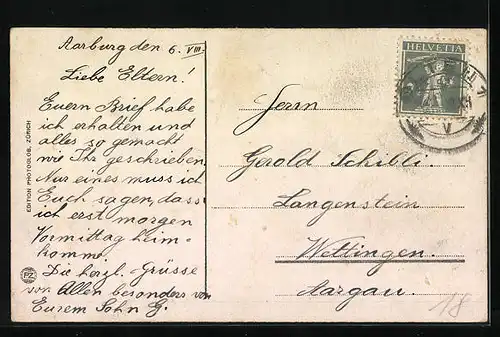 Aarburg den 6. VIII.
Liebe Eltern!
Euern Brief habe
ich erhalten und
alles so gemacht
wie Ihr geschrieben.
Nur eines muss ich
Euch sagen, dass
ich erst morgen
Vormittag heim-
komme.
Die herzl. Grüsse
von Allen besonders von
Eurem Sohn G.
EDITION PHOTOGLOB, ZÜRICH
PZ
HELVETIA
Herrn
Gerold Schibli.
Langenstein
Wettingen.
Aargau.
18